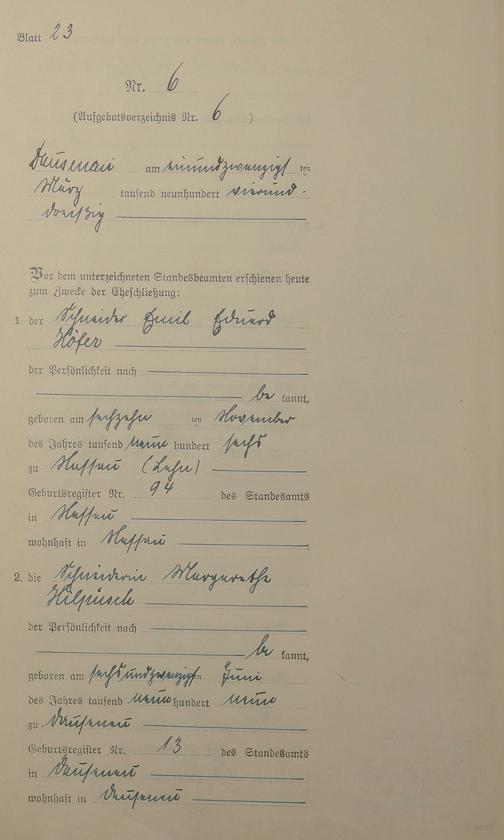 Blatt 23
Nr. 6
(Aufgebotsverzeichnis Nr. 6 )
Dausenau am einundzwanzigst ten
März tausend neunhundert vierund-
dreißig
Vor dem unterzeichneten Standesbeamten erschienen heute
zum Zwecke der Eheschließung:
1. der Schneider Emil Eduard
Höfer
der Persönlichkeit nach
be kannt,
geboren am sechzehn ten November
des Jahres tausend neun hundert sechs
zu Nassau (Lahn)
Geburtsregister Nr. 94 des Standesamts
in Nassau
wohnhaft in Nassau
2. die Schneiderin Margarethe
Hilpüsch
der Persönlichkeit nach
be kannt,
geboren am sechsundzwanzigsten Juni
des Jahres tausend neun hundert neun
zu Dausenau
Geburtsregister Nr. 13 des Standesamts
in Dausenau
wohnhaft in Dausenau